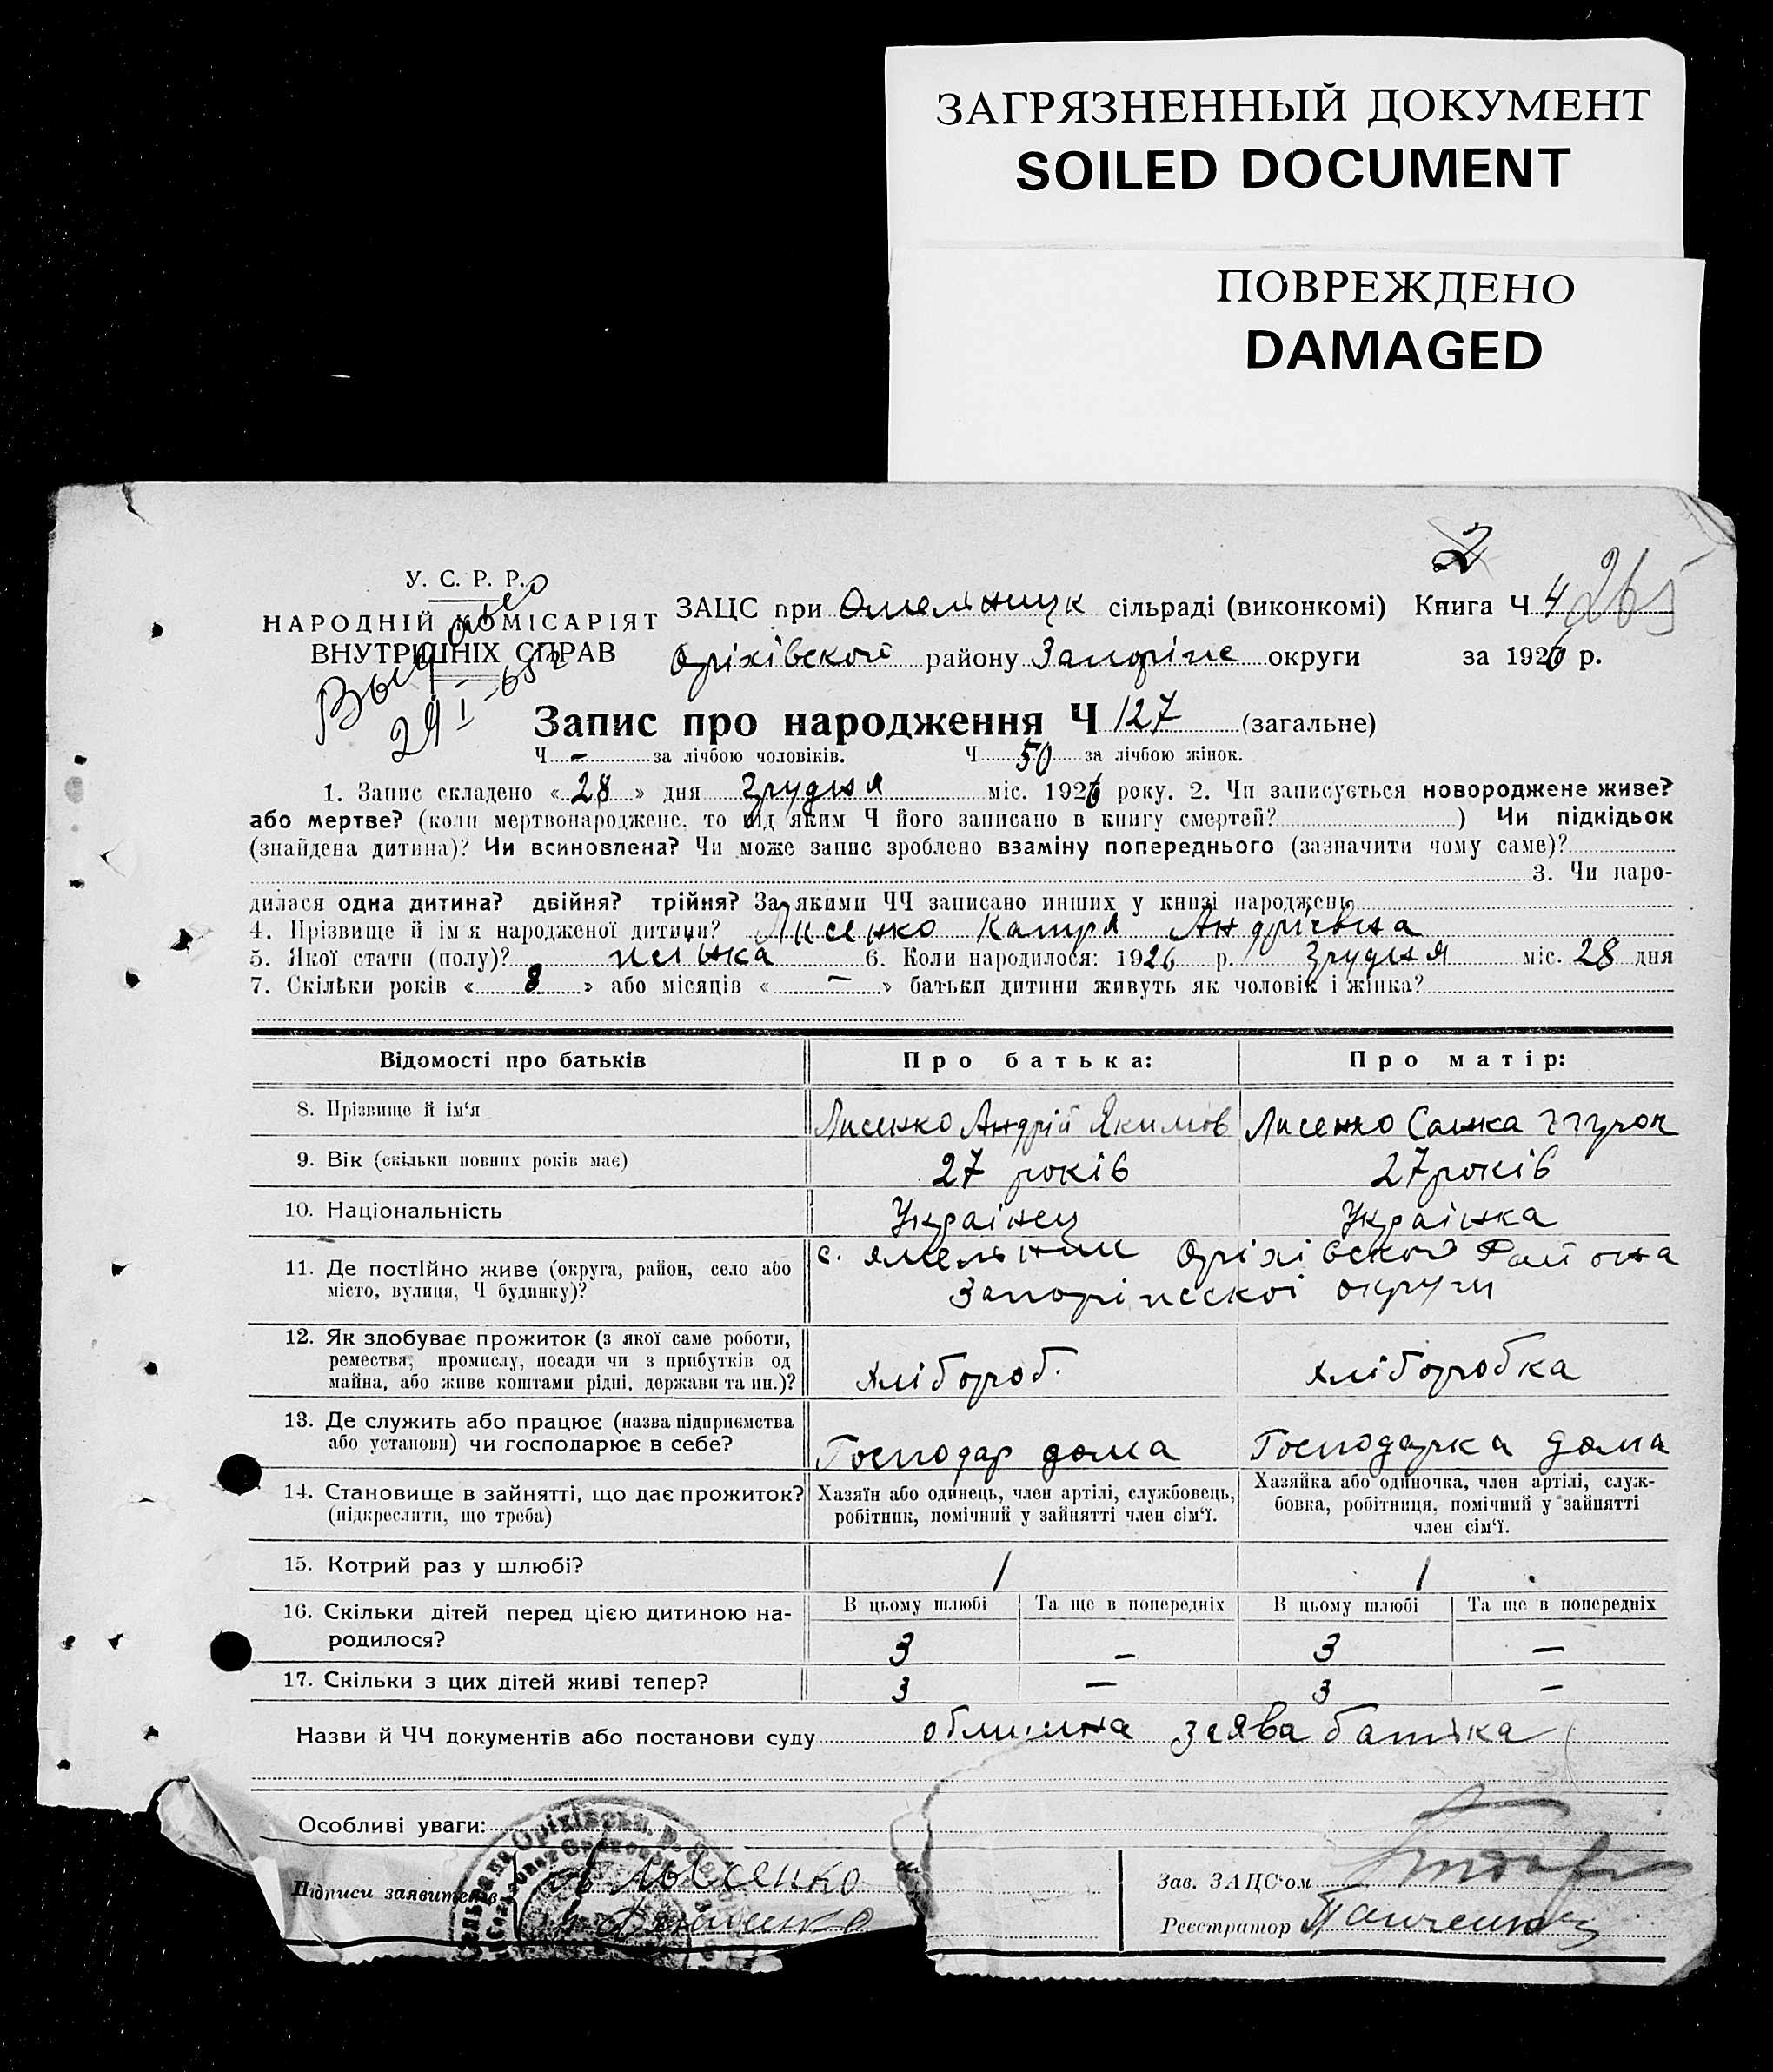 ЗАГРЯЗНЕННЫЙ ДОКУМЕНТ
SOILED DOCUMENT
ПОВРЕЖДЕНО
DAMAGED
2
У. С. Р. Р.
НАРОДНІЙ КОМІСАРІЯТ
ВНУТРІШНІХ СПРАВ
29 I-65 г
ЗАЦС при Омельницук сільраді (виконкомі) Книга Ч 4 265
Оріхівскої району Запоріже округи за 1926 р.
Запис про народження Ч 127 (загальне)
Ч - за лічбою чоловіків. Ч 50 за лічбою жінок.
1. Запис складено « 28 » дня Грудня міс. 1926 року. 2. Чи записується новороджене живе?
або мертве? (коли мертвонароджене, то під яким Ч його записано в книгу смертей? ) Чи підкідьок
(знайдена дитина)? Чи всиновлена? Чи може запис зроблено взаміну попереднього (зазначити чому саме)?
3. Чи наро-
дилася одна дитина? двійня? трійня? За якими ЧЧ записано инших у книзі народжень
4. Прізвище й ім'я народженої дитини? Лисенко Катря Андріївна
5. Якої стати (полу)? жіынка 6. Коли народилося: 1926 р. Грудня міс. 28 дня
7. Скільки років « 8 » або місяців « — » батьки дитини живуть як чоловік і жінка?
Відомості про батьків Про батька: Про матір:
8. Прізвище й ім'я Лисенко Андрій Якимов Лисенко Санка
9. Вік (скільки повних років має) 27 років 27 років
10. Національність Українец Українка
11. Де постійно живе (округа, район, село або с. Омельник Оріхівскої Району
місто, вулиця, Ч будинку)? Запоріжскої округи
12. Як здобуває прожиток (з якої саме роботи,
ремества, промислу, посади чи з прибутків од
майна, або живе коштами рідні, держави та ин.)? хлібороб. хліборобка
13. Де служить або працює (назва підприємства
або установи) чи господарює в себе? Господар дома Господарка дома
14. Становище в зайнятті, що дає прожиток? Хазяїн або одинець, член артілі, службовець, Хазяйка або одиночка, член артілі, служ-
(підкреслити, що треба) робітник, помічний у зайнятті член сім'ї. бовка, робітниця, помічний у зайнятті
член сім'ї.
15. Котрий раз у шлюбі? 1 1
16. Скільки дітей перед цією дитиною на- В цьому шлюбі Та ще в попередніх В цьому шлюбі Та ще в попередніх
родилося? 3 — 3 —
17. Скільки з цих дітей живі тепер? 3 — 3 —
Назви й ЧЧ документів або постанови суду заява батька
Особливі уваги:
Підписи заявителів Лысенко
Зав. ЗАЦС'ом
Реєстратор Панченко